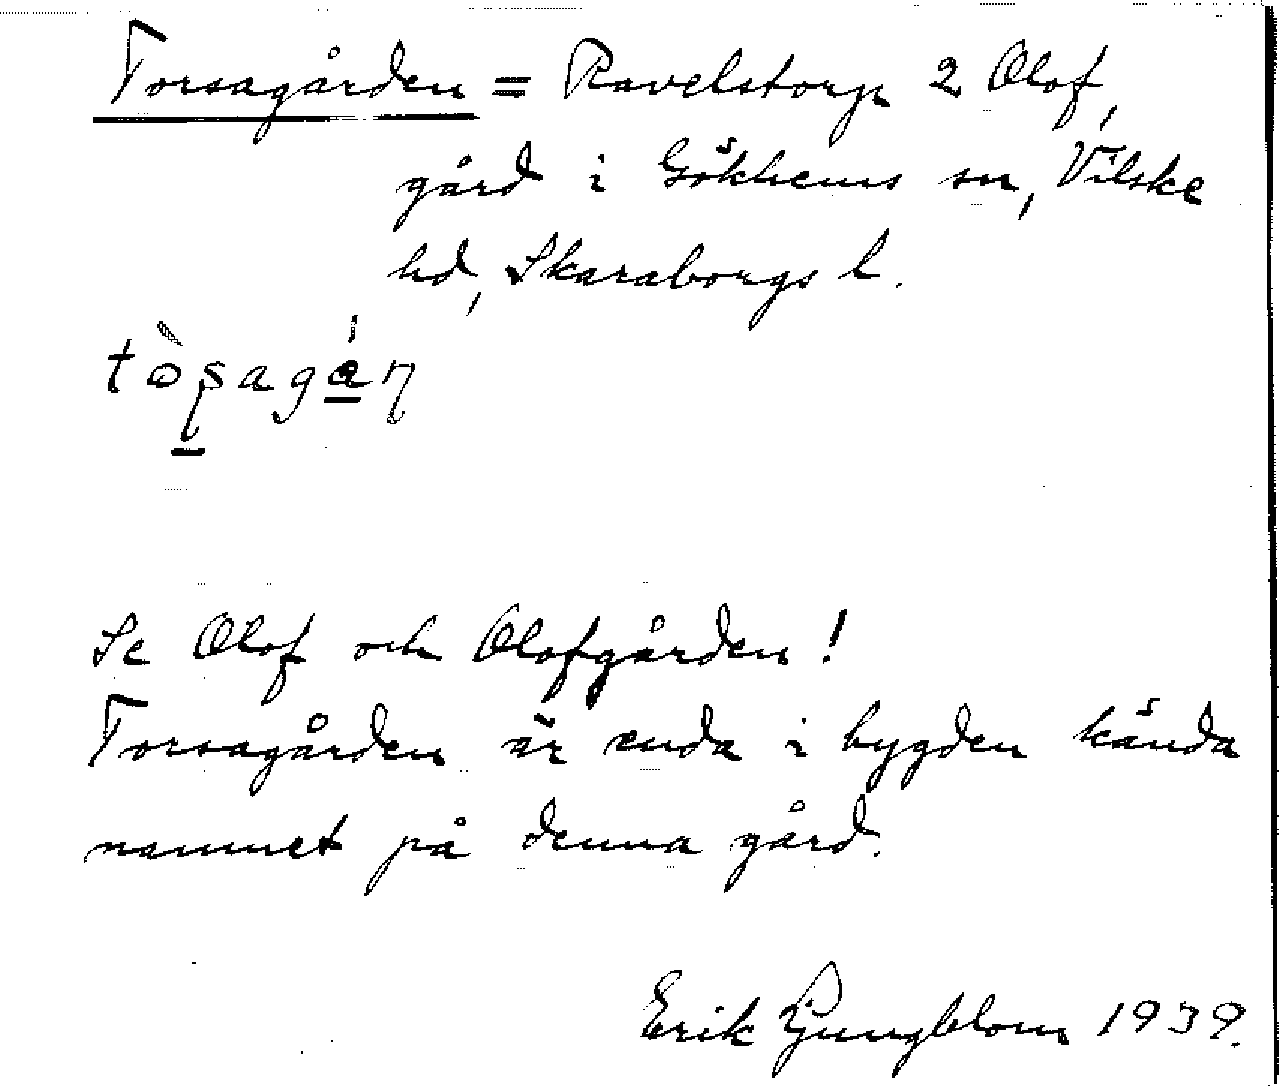 Torsagården = Ravelstorp 2 Olof,
gård i Gökhems sn, Vilske
hd, Skaraborgs l.
Se Olof och Olofgården!
Torsagården är enda i bygden kända
namnet på denna gård.
Erik Ljungblom 1939.